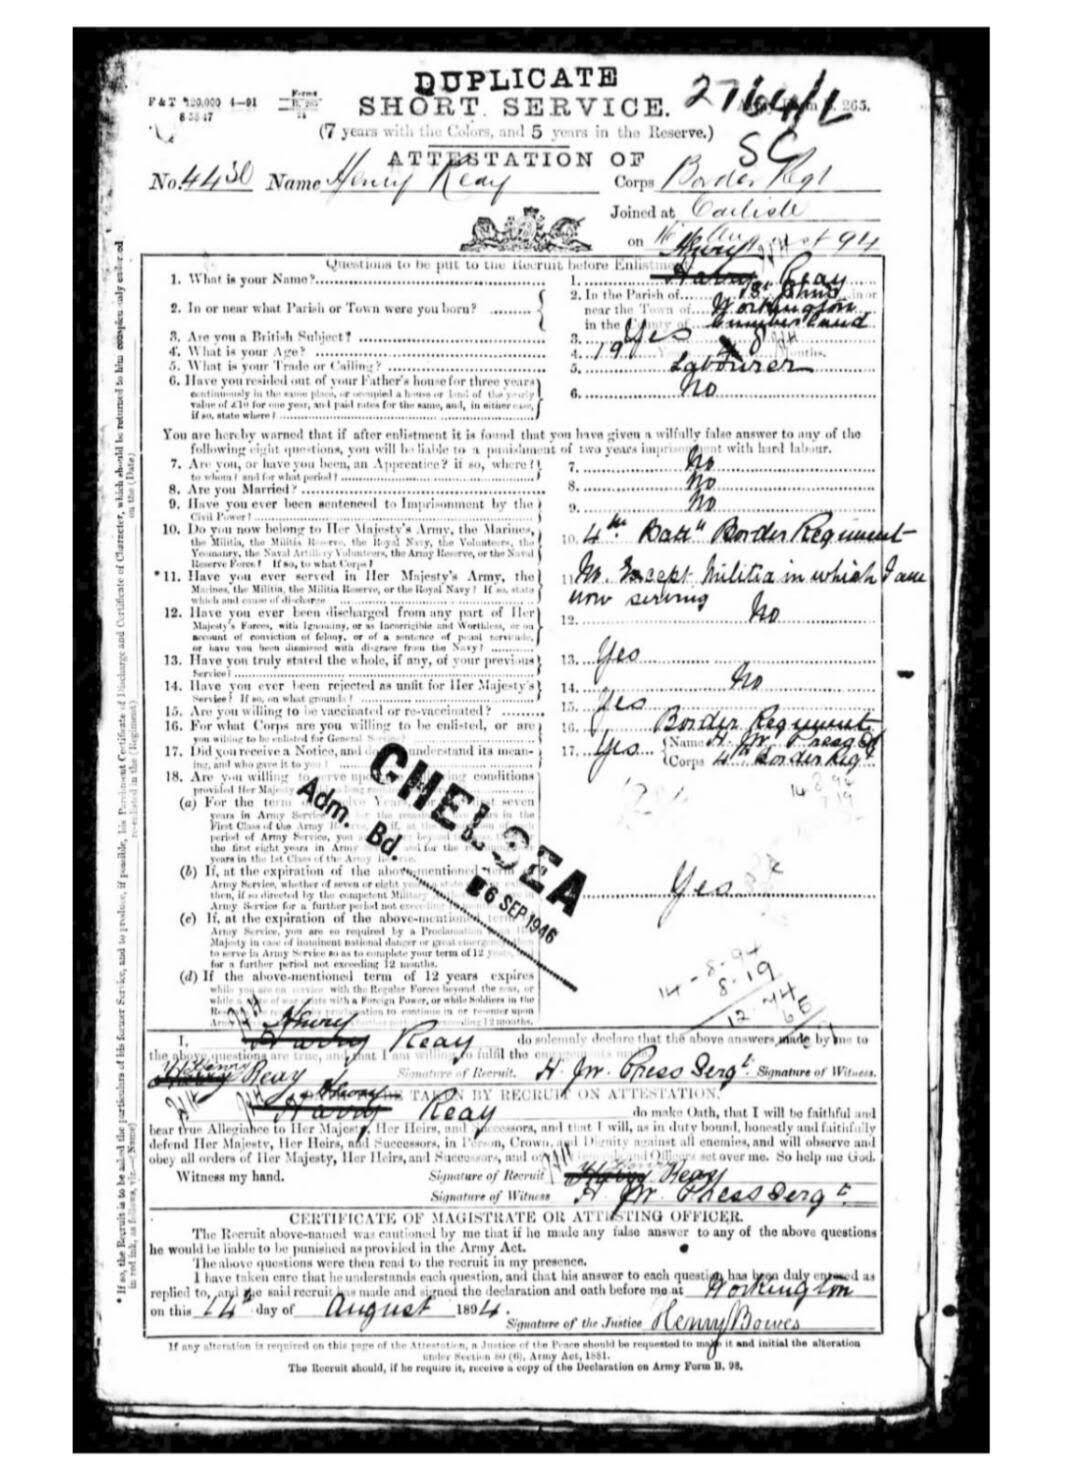 DUPLICATE
F & T 120,000 4—91 Forms
SHORT SERVICE. Army Form B. 265.
(7 years with the Colors, and 5 years in the Reserve.)
SC
ATTESTATION OF
No. 4430 Name Henry Reay Corps Border Regt
Joined at Carlisle
on 16 August 94
Questions to be put to the Recruit before Enlistment.
1. What is your Name? 1. Harry Henry Reay
2. In or near what Parish or Town were you born? 2. In the Parish of St Johns in or
near the Town of Workington
in the County of Cumberland
3. Are you a British Subject? 3. Yes
4. What is your Age? 4. 19 months.
5. What is your Trade or Calling? 5. Labourer
6. Have you resided out of your Father's house for three years 6. No
continuously in the same place, or occupied a house or land of the yearly
value of £10 for one year, and paid rates for the same, and, in either case,
if so, state where?
You are hereby warned that if after enlistment it is found that you have given a wilfully false answer to any of the
following eight questions, you will be liable to a punishment of two years imprisonment with hard labour.
7. Are you, or have you been, an Apprentice? if so, where? 7. No
to whom? and for what period?
8. Are you Married? 8. No
9. Have you ever been sentenced to Imprisonment by the 9. No
Civil Power?
10. Do you now belong to Her Majesty's Army, the Marines, 10. 4th Batt" Border Regiment
the Militia, the Militia Reserve, the Royal Navy, the Volunteers, the
Yeomanry, the Naval Artillery Volunteers, the Army Reserve, or the Naval
Reserve Force? If so, to what Corps?
*11. Have you ever served in Her Majesty's Army, the 11. No. Except Militia in which I am
Marines, the Militia, the Militia Reserve, or the Royal Navy? If so, state now serving
which and cause of discharge
12. Have you ever been discharged from any part of Her 12. No
Majesty's Forces, with Ignominy, or as Incorrigible and Worthless, or on
account of conviction of felony, or of a sentence of penal servitude,
or have you been dismissed with disgrace from the Navy?
13. Have you truly stated the whole, if any, of your previous 13. Yes
Service?
14. Have you ever been rejected as unfit for Her Majesty's 14. No
Service? If so, on what grounds?
15. Are you willing to be vaccinated or re-vaccinated? 15. Yes
16. For what Corps are you willing to be enlisted, or are 16. Border Regiment
you willing to be enlisted for General Service?
17. Did you receive a Notice, and do you understand its mean- 17. Yes Name H. W. Press Sgt
ing, and who gave it to you? Corps 4th Border Regt
18. Are you willing to serve upon the following conditions
provided Her Majesty
(a) For the term of twelve Years, for the first seven
years in Army Service
First Class of the Army
period of Army Service, you
the first eight years in Army and for the
years in the 1st Class of the Army Reserve.
(b) If, at the expiration of the above-mentioned term Yes
Army Service, whether of seven or eight years
then, if so directed by the competent Military
Army Service for a further period not exceeding
(c) If, at the expiration of the above-mentioned term
Army Service, you are so required by a Proclamation
Majesty in case of imminent national danger or great emergency
to serve in Army Service so as to complete your term of 12 years
for a further period not exceeding 12 months.
(d) If the above-mentioned term of 12 years expires
while you are on service with the Regular Forces beyond the seas, or
while a state of war exists with a Foreign Power, or while Soldiers in the
proclamation to continue in or re-enter upon
exceeding 12 months.
CHELSEA
Adm. Bd.
6 SEP 1946
14-8-94
8-19
I, Harry Henry Reay do solemnly declare that the above answers made by me to
the above questions are true, and that I am willing to fulfil the engagements made.
Harry Henry Reay Signature of Recruit. H. W. Press Sergt Signature of Witness.
OATH TO BE TAKEN BY RECRUIT ON ATTESTATION.
Harry Henry Reay do make Oath, that I will be faithful and
bear true Allegiance to Her Majesty, Her Heirs, and Successors, and that I will, as in duty bound, honestly and faithfully
defend Her Majesty, Her Heirs, and Successors, in Person, Crown, and Dignity against all enemies, and will observe and
obey all orders of Her Majesty, Her Heirs, and Successors, and of Generals and Officers set over me. So help me God.
Witness my hand. Signature of Recruit Harry Henry Reay
Signature of Witness H. W. Press Sergt
CERTIFICATE OF MAGISTRATE OR ATTESTING OFFICER.
The Recruit above-named was cautioned by me that if he made any false answer to any of the above questions
he would be liable to be punished as provided in the Army Act.
The above questions were then read to the recruit in my presence.
I have taken care that he understands each question, and that his answer to each question has been duly entered as
replied to, and the said recruit has made and signed the declaration and oath before me at Workington
on this 14th day of August 1894.
Signature of the Justice Henry Bowes
If any alteration is required on this page of the Attestation, a Justice of the Peace should be requested to make it and initial the alteration
under Section 80 (6), Army Act, 1881.
The Recruit should, if he require it, receive a copy of the Declaration on Army Form B. 98.
* If so, the Recruit is to be asked the particulars of his former Service, and to produce, if possible, his Parchment Certificate of Discharge and Certificate of Character, which should be returned to him conspicuously endorsed
in red ink, as follows, viz.—(Name) re-enlisted in the (Regiment) on the (Date)